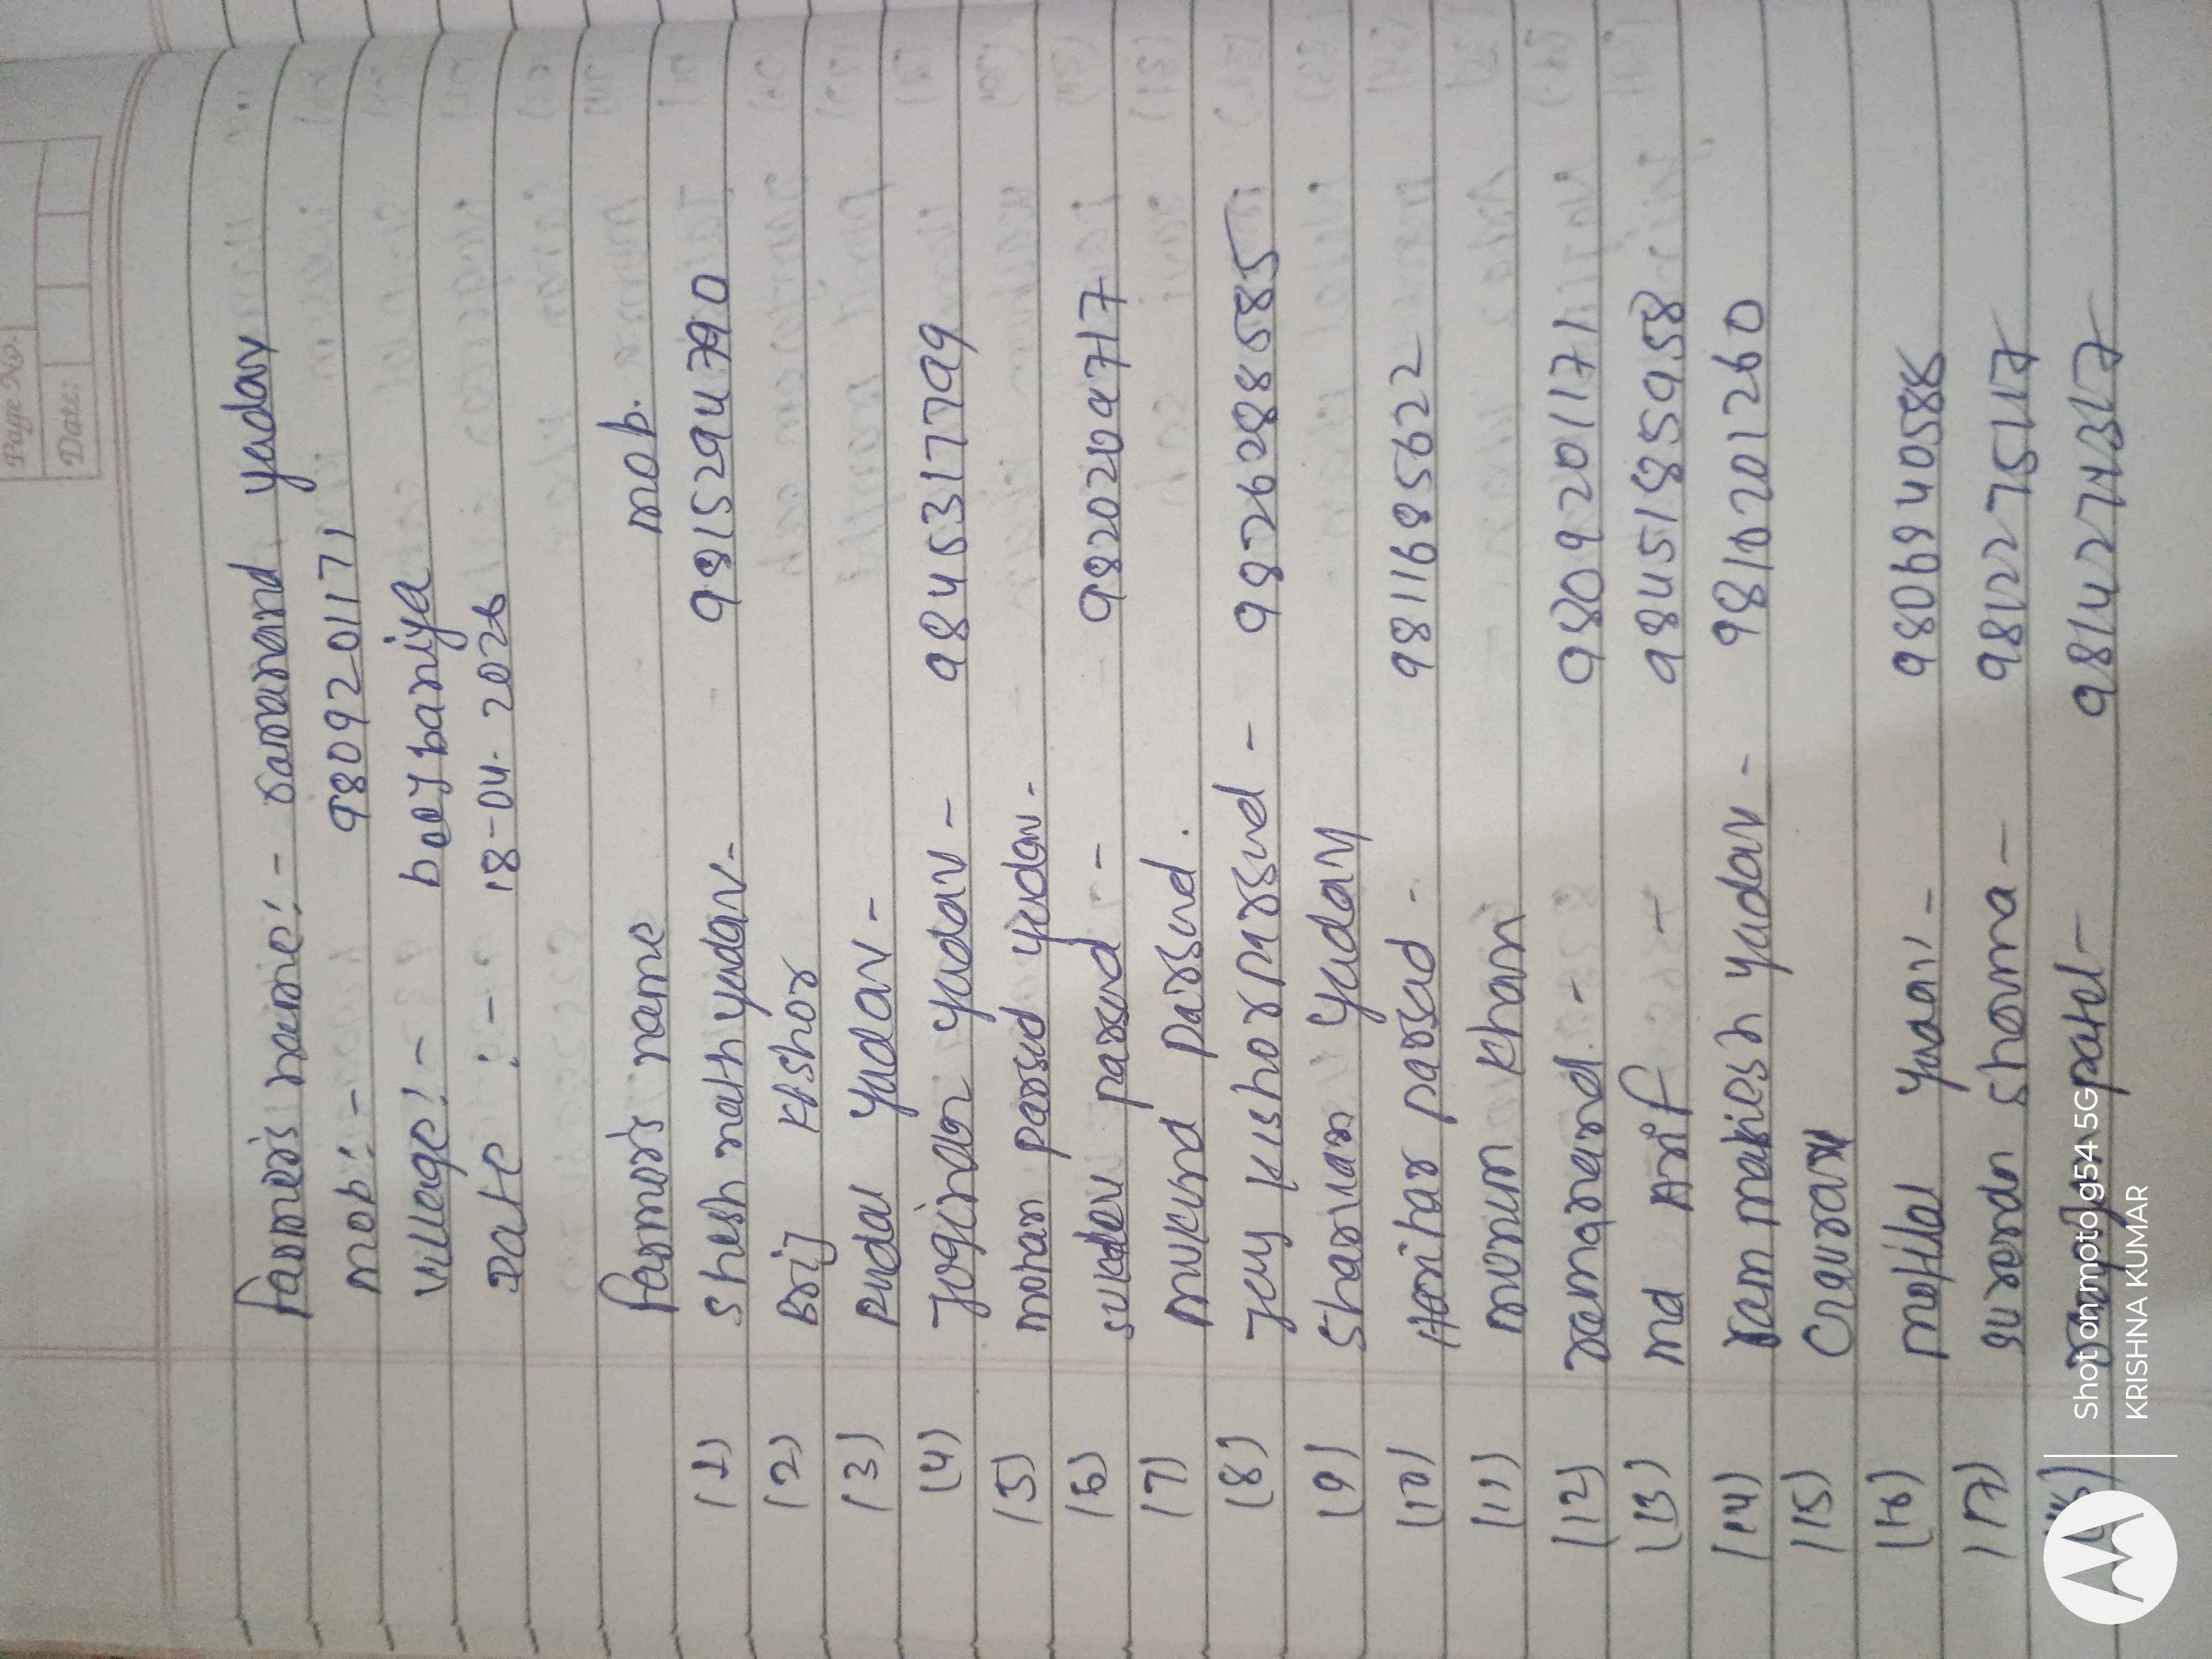 Page No.
Date:
Farmer's name:- ramanand yadav
mob:- 9809201171
village:- belbaniya
Date:- 18-04-2026
Farmer's name mob.
(1) Shesh nath yadav-
(2) Brij Kishor
(3) Rudal yadav-
(4) Jogindar yadav- 9845317799
(5) mohan parsud yadav-
(6) sukdev parsud-
(7) mukund parsud.
(8) Jay kishor parsud- 9826288585
(9) Sharwan yadav
(10) Harihar parsad- 9811685622
(11) munum khan
(12) ramanand- 9809201171
(13) md Arif- 9845185958
(14) ram makesh yadav- 9810201260
(15)
(16) motilal yadav- 9806940588
(17) surendr sharma- 9812275117
patel- 9814274317
Shot on moto g54 5G
KRISHNA KUMAR